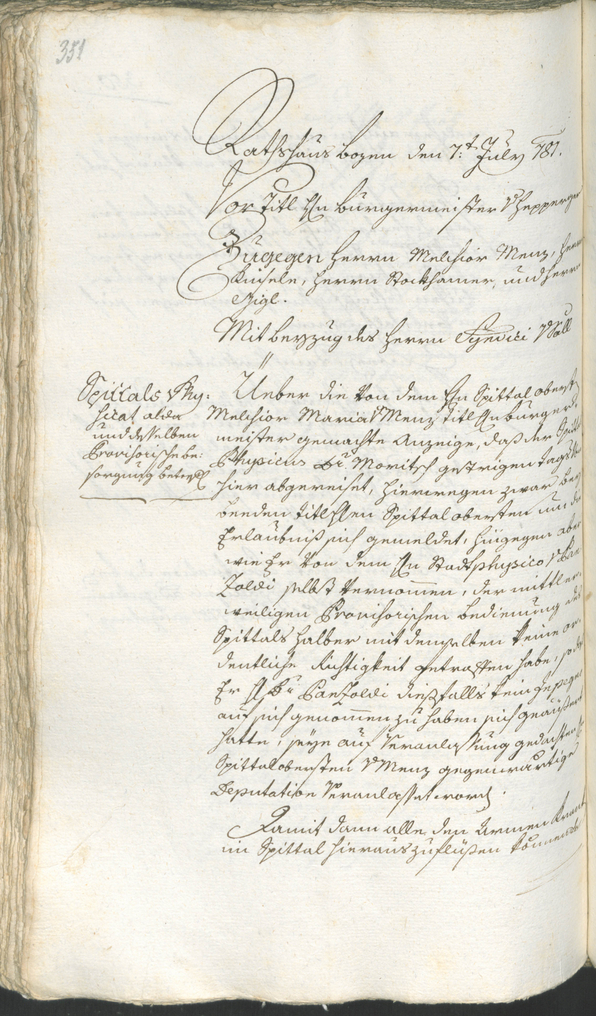 351
Rathshaus Bozen den 7:t July 781.
Vor Titl Hn Burgermeister v Zepperg
Zugegen Herrn Melchior Menz, Herrn
Kuchele, Herrn Stockhamer, und Herrn
Gigl.
Mit beyzug des Herrn Syndici v
Spittals Phy:
sicat alda
und desselben
Provisorische be:
sorgung betref
Ueber die von dem Hn Spittal oberst
Melchior Maria v Menz Titl Hn burger:
meister gemachte Anzeige, daß der Spittal
Physicus Dr Moritsch gestrigen tags
hier abgereiset, hierwegen zwar bey
beeden titl Hen Spittalobersten um die
Erlaubniß sich gemeldet, hingegen aber
wie Er von dem Hn Stadtphysico v Pan
Zoldi selbst vernommen, der mittler
weiligen Provisorischen bedienung des
Spittals halber mit demselben keine or
dentliche Richtigkeit getroffen habe, so
Er H Dr PanZoldi dießfalls kein
auf sich genommen zu haben sich geäußert
hatte, seye auf Veranlassung gedachten
Spittalobersten v Menz gegenwärtige
Deputation Veranlasset word
Damit dann alle den Armen Krank
im Spittal hieraus zuflüßen könnende